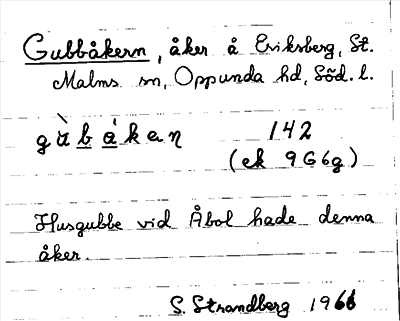 Gubbåkern, åker å Eriksberg, St.
Malms sn, Oppunda hd, Söd. l.
gὰbάkaη 142
(ek 9G6g)
Husgubbe vid Åbol hade denna
åker.
S. Strandberg 1966